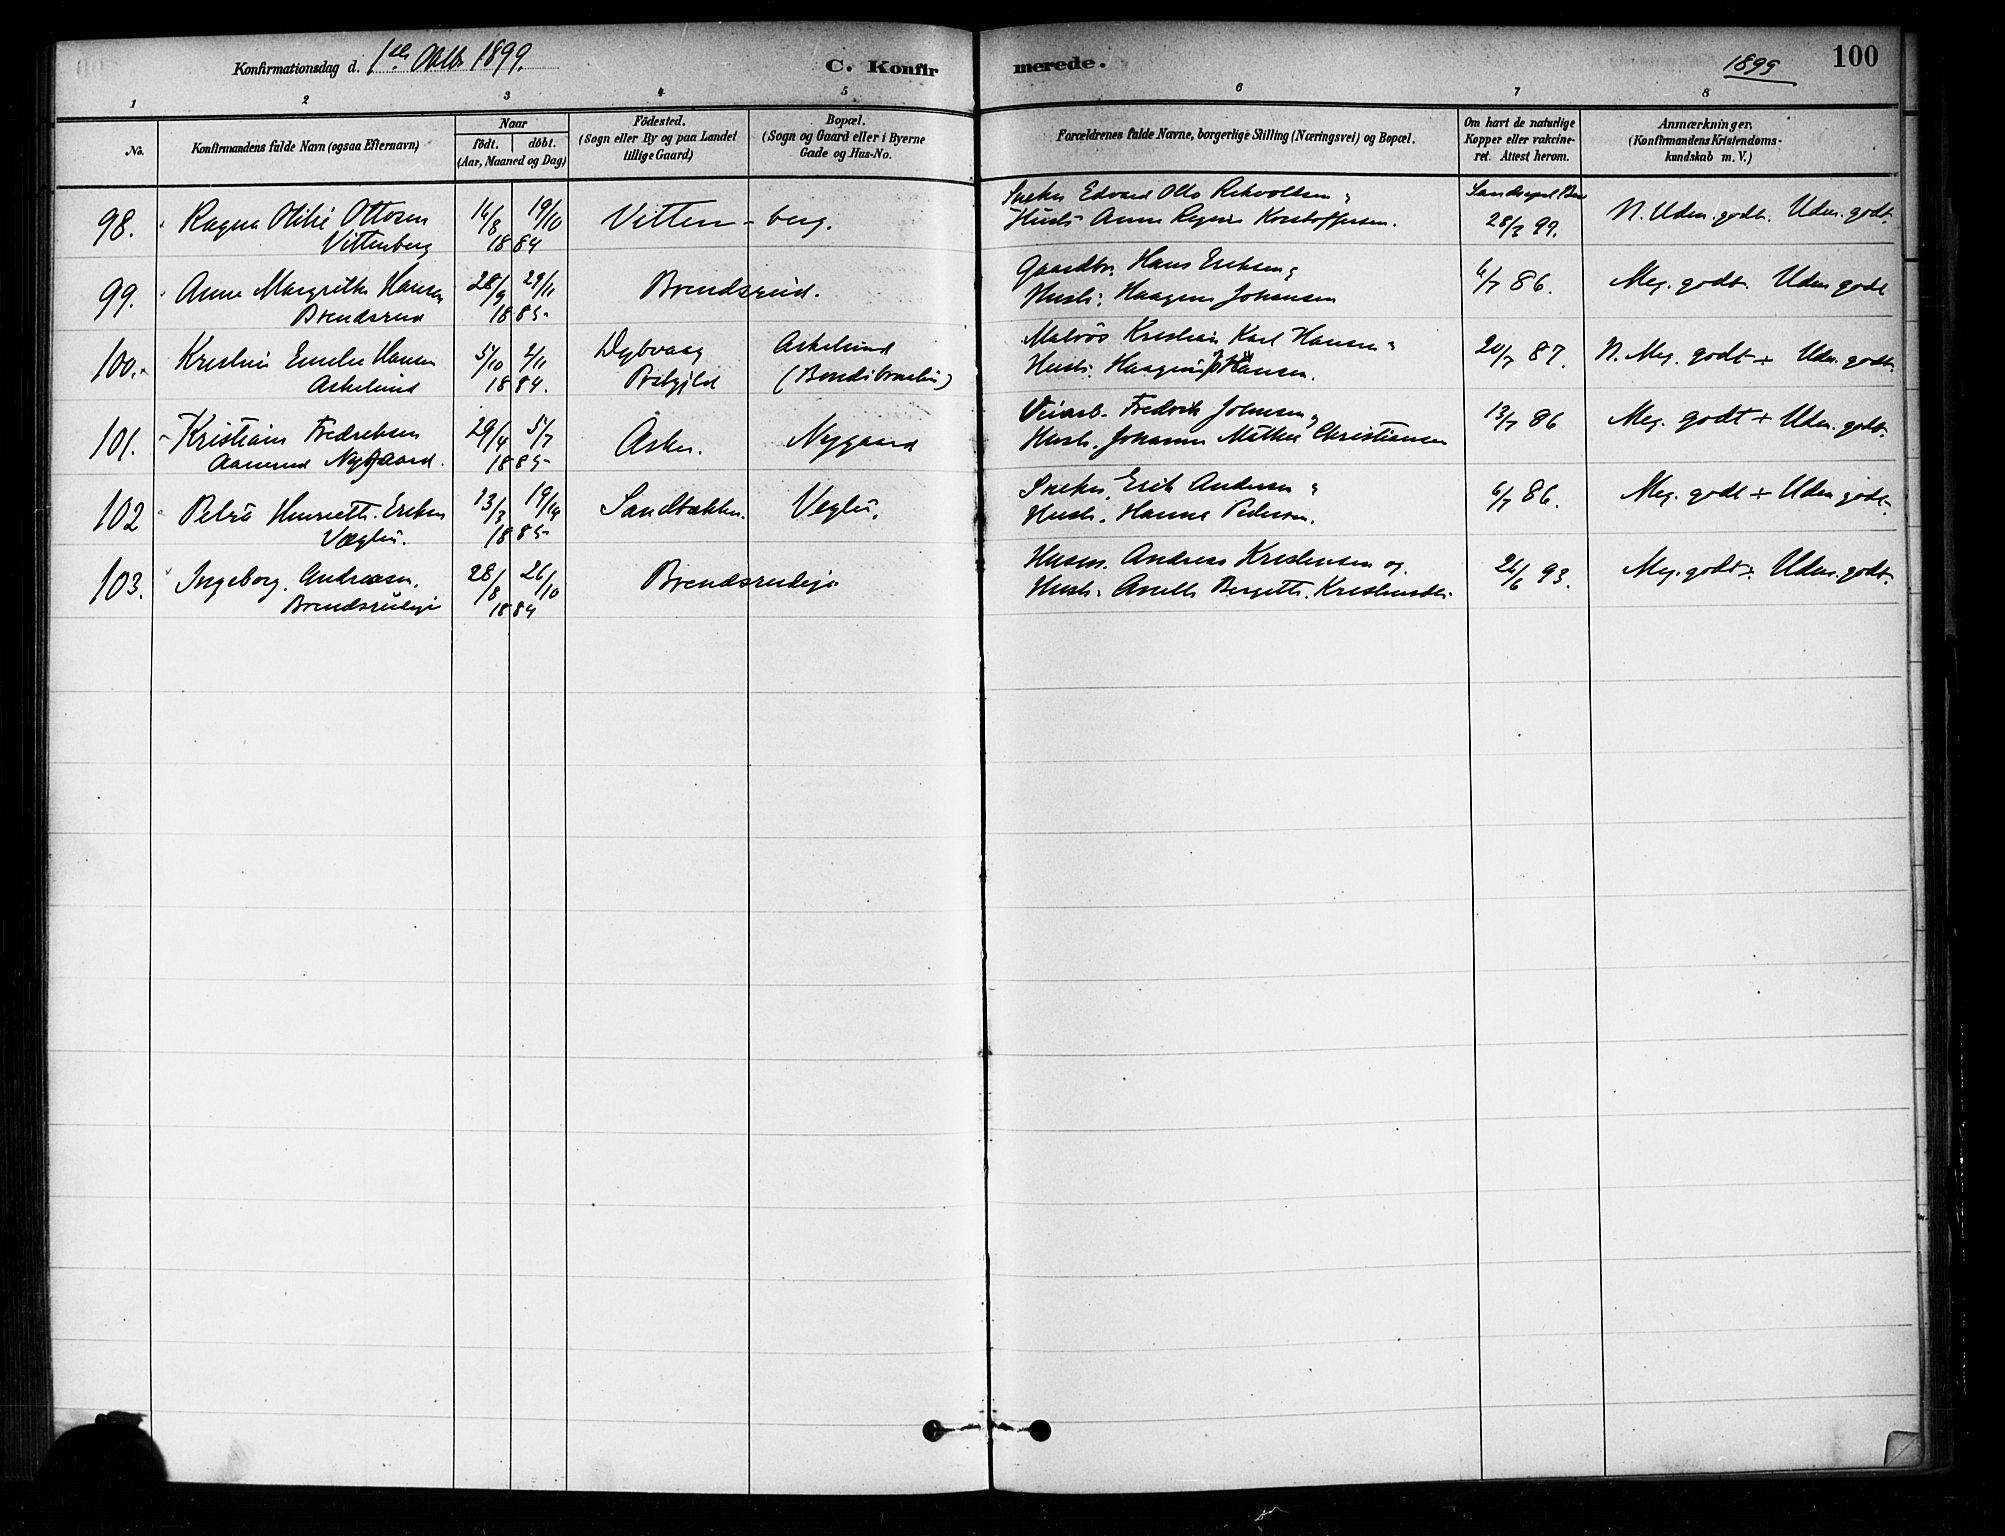 Konfirmationsdag d. 1ste Oktbr 1899.
C. Konfirmerede.
1899
100
1 2 3 4 5 6 7 8
No.
Konfirmandens fulde Navn (ogsaa Efternavn)
Naar
födt. döbt.
(Aar, Maaned og Dag)
Födested.
(Sogn eller By og paa Landet
tillige Gaard)
Bopæl.
(Sogn og Gaard eller i Byerne
Gade og Hus-No.
Forældrenes fulde Navne, borgerlige Stilling (Næringsvei) og Bopæl.
Om havt de naturlige
Kopper eller vakcine-
ret. Attest herom.
Anmærkninger.
(Konfirmandens Kristendoms-
kundskab m. V.)
98. Ragna Otilie Ottosen
Vittenberg
14/8 19/10
1884
Vitten-berg.
Edvard Otto
Hustr. Anne
28/3 99.
N. Uden. godt. Uden. godt.
99. Anne Margrethe Hansen
Brendsrud
28/9 29/11
1885
Brendsrud.
Gaardbr. Hans Eriksen
Hustr. Haagine Johansen
6/7 86.
Meg. godt. Uden godt
100. Kristine Emilie Hansen
Askelund
5/10 2/11
1884.
Dybvaag
Askelund
Kristian Karl Hansen
Hustr. Hansen.
20/7 87.
N. Meg. godt + Uden. godt.
101. Kristian Fredriksen
Aamerud Nygaard.
29/4 5/7
1885
Asker.
Nygaard
Veiarb. Fredrik Johnsen
Hustr. Johanne Mathea Christiansen
13/7 86
Meg. godt + Uden. godt.
102 Petra Henriette Eriksen
Væglei.
13/3 19/14
1885
Sandbakken.
Veglei.
Snekker. Erik Andersen
Hustr. Hanne Pedersen.
6/7 86.
Meg. godt + Uden godt.
103. Ingeborg. Andreasen.
Brendsrudeje
28/8 26/10
1884
Brendsrudeje
Husm. Andreas Kristensen og
Hustr. Bergitte. Kristiansdtr.
26/6 93.
Meg. godt + Uden. godt.